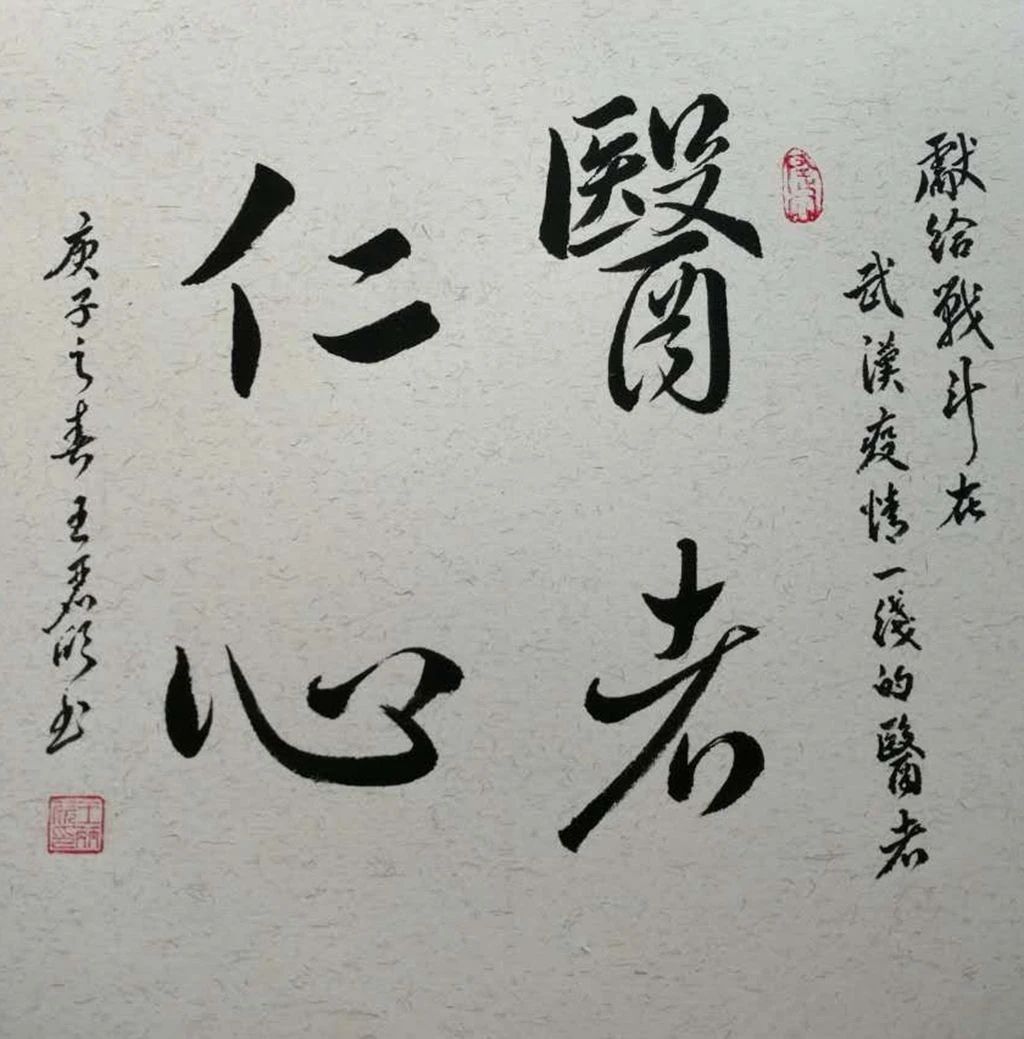 獻给戰斗在
武漢疫情一綫的醫者
醫者
仁心
庚子之春王君明书